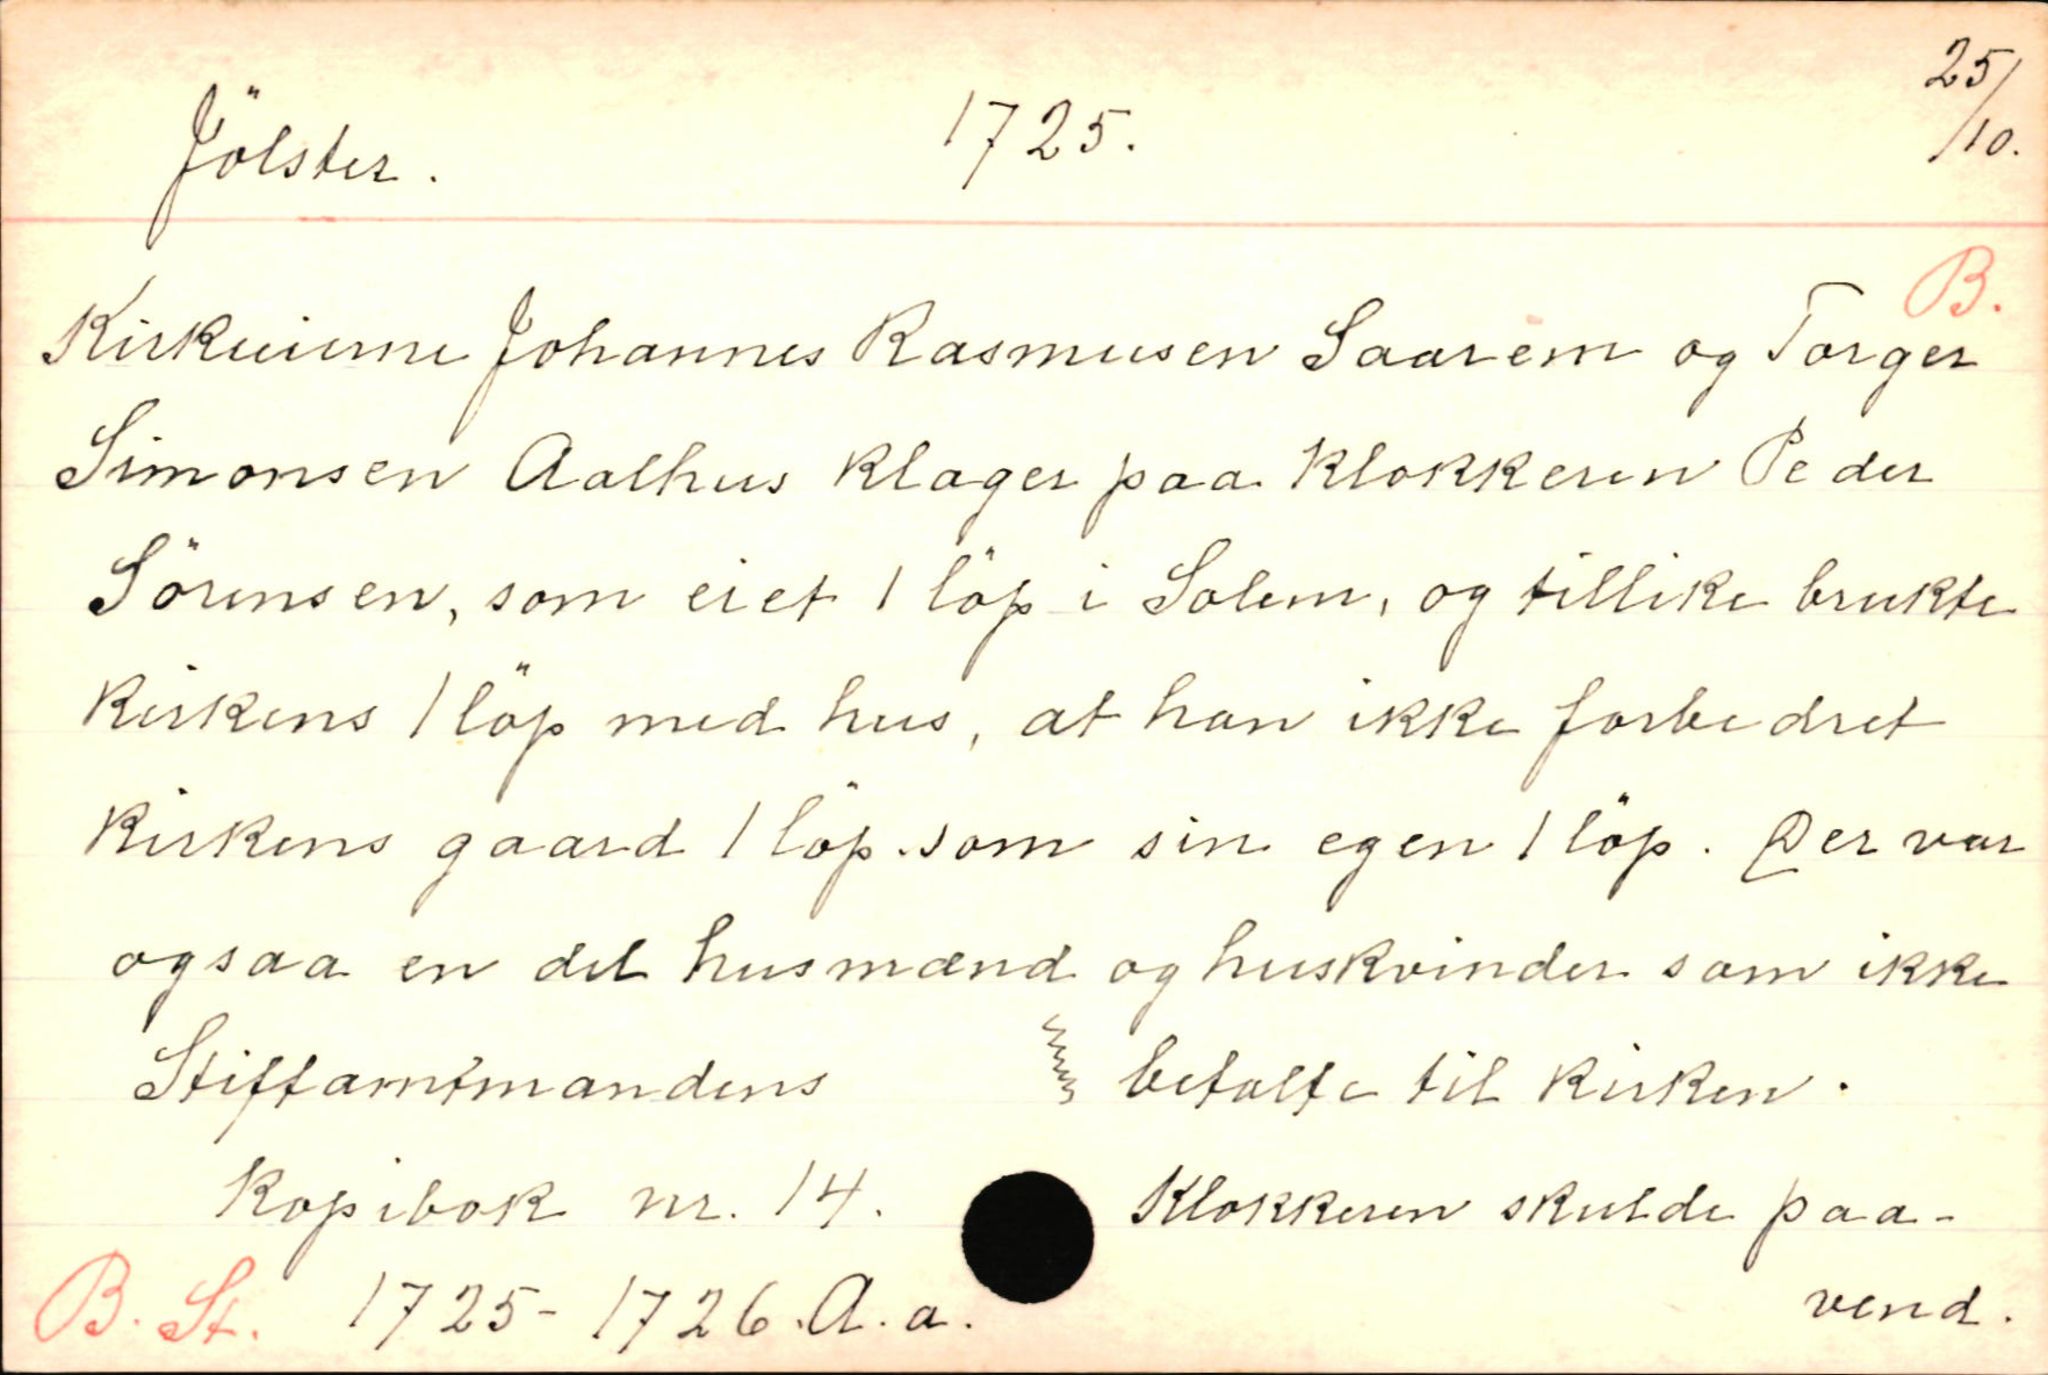 Jölster. 1725. 25/10.
B.
Kirkeeierne Johannes Rasmusen Saarem og Torger
Simonsen Aalhus klager paa klokkeren Peder
Sörensen, som eiet 1 löp i Solem, og tillike brukte
kirkens 1 löp med hus, at han ikke forbedret
kirkens gaard 1 löp som sin egen 1 löp. Der var
ogsaa en del husmænd og huskvinder som ikke
betalte til kirken.
Klokkeren skulde paa-
vend.
Stiftamtmandens
Kopibok nr. 14.
B. St. 1725-1726. A. a.